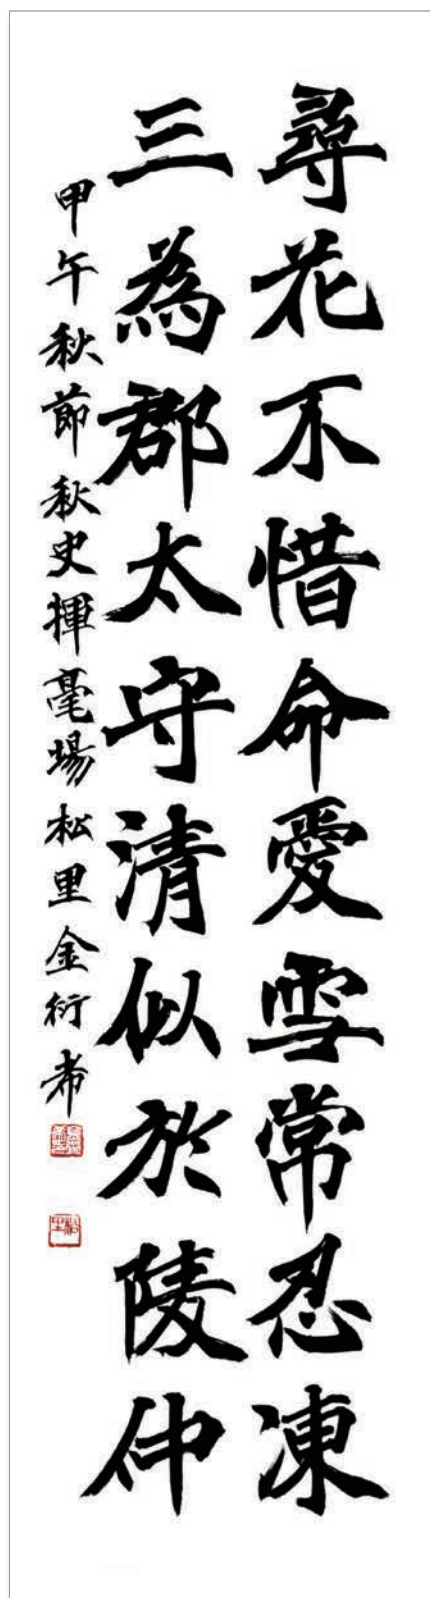 尋花不惜命愛雪常忍凍
三為郡太守清似於陵仲
甲午秋節秋史揮毫場松里金衍希